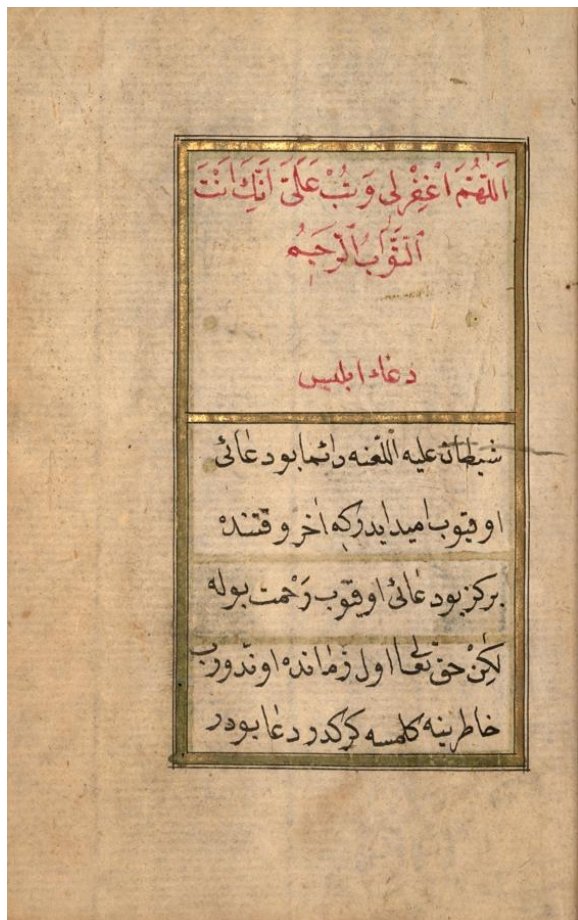 اَللّٰهُمَّ اغْفِرْلِى وَتُبْ عَلَىَّ اِنَّكَ اَنْتَ
اَلتَّوَّابُ الرَّحِيمُ
دعاء ابليس
شيطان عليه اللعنه دائما بو دعائى
اوقيوب اميد ايدركه اخر وقتنده
بركز بو دعائى اوقيوب رحمت بوله
لكن حق تعالى اول زمانده اوندورب
خاطرينه كلمسه كركدر دعا بودر